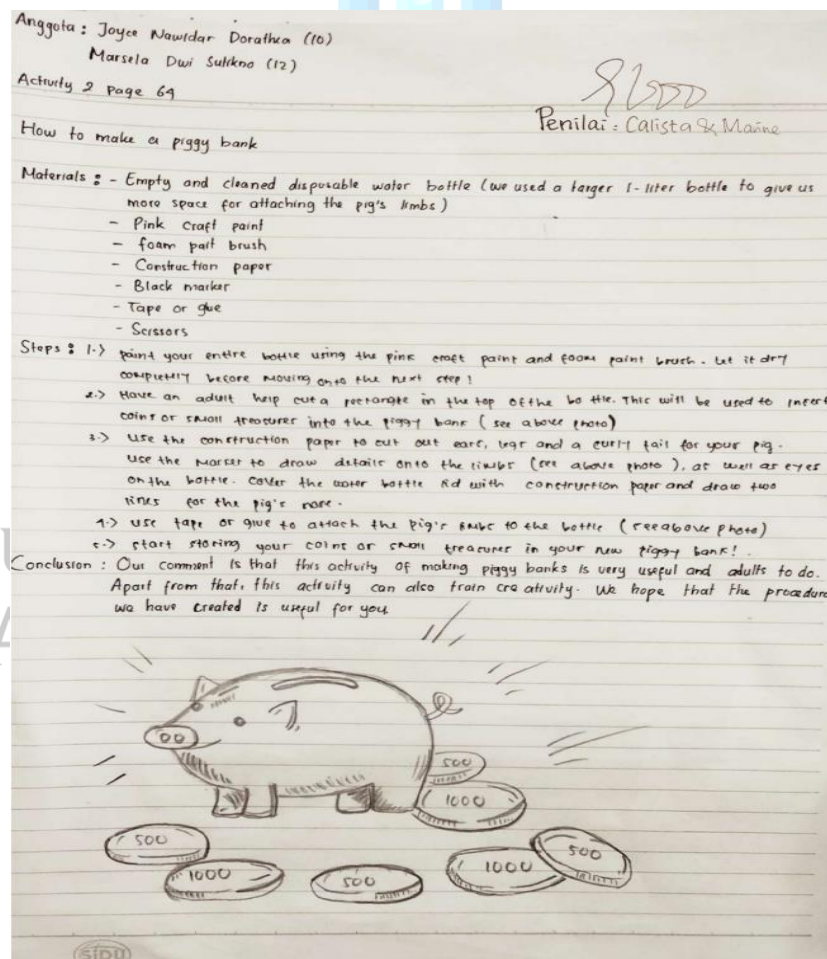 Anggota : Joyce Nawidar Dorathea (10)
Marsela Dwi Sutikno (12)
Activity 2 Page 64
Penilai : Calista & Marine
How to make a piggy bank
Materials : - Empty and cleaned disposable water bottle (we used a larger 1-liter bottle to give us
more space for attaching the pig's limbs)
- Pink craft paint
- foam pait brush
- Construction paper
- Black marker
- Tape or glue
- Scissors
Steps : 1.) paint your entire bottle using the pink craft paint and foam paint brush. Let it dry
completly before moving onto the next step !
2.) Have an adult help cut a rectangle in the top of the bottle. This will be used to insert
coins or small treasures into the piggy bank (see above photo)
3.) Use the construction paper to cut out ears, legs and a curly tail for your pig.
Use the marker to draw details onto the limbs (see above photo), as well as eyes
on the bottle. Cover the water bottle lid with construction paper and draw two
lines for the pig's nose.
4.) Use tape or glue to attach the pig's limbs to the bottle (see above photo)
5.) Start storing your coins or small treasures in your new piggy bank! .
Conclusion : Our comment is that this activity of making piggy banks is very useful and adults to do.
Apart from that, this activity can also train creativity. We hope that the procedure
we have created is useful for you
500
1000
500
1000
500
1000
500
SIDU